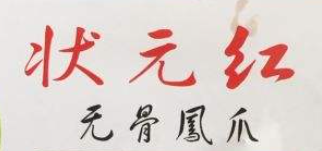 状元红
无骨鳳爪